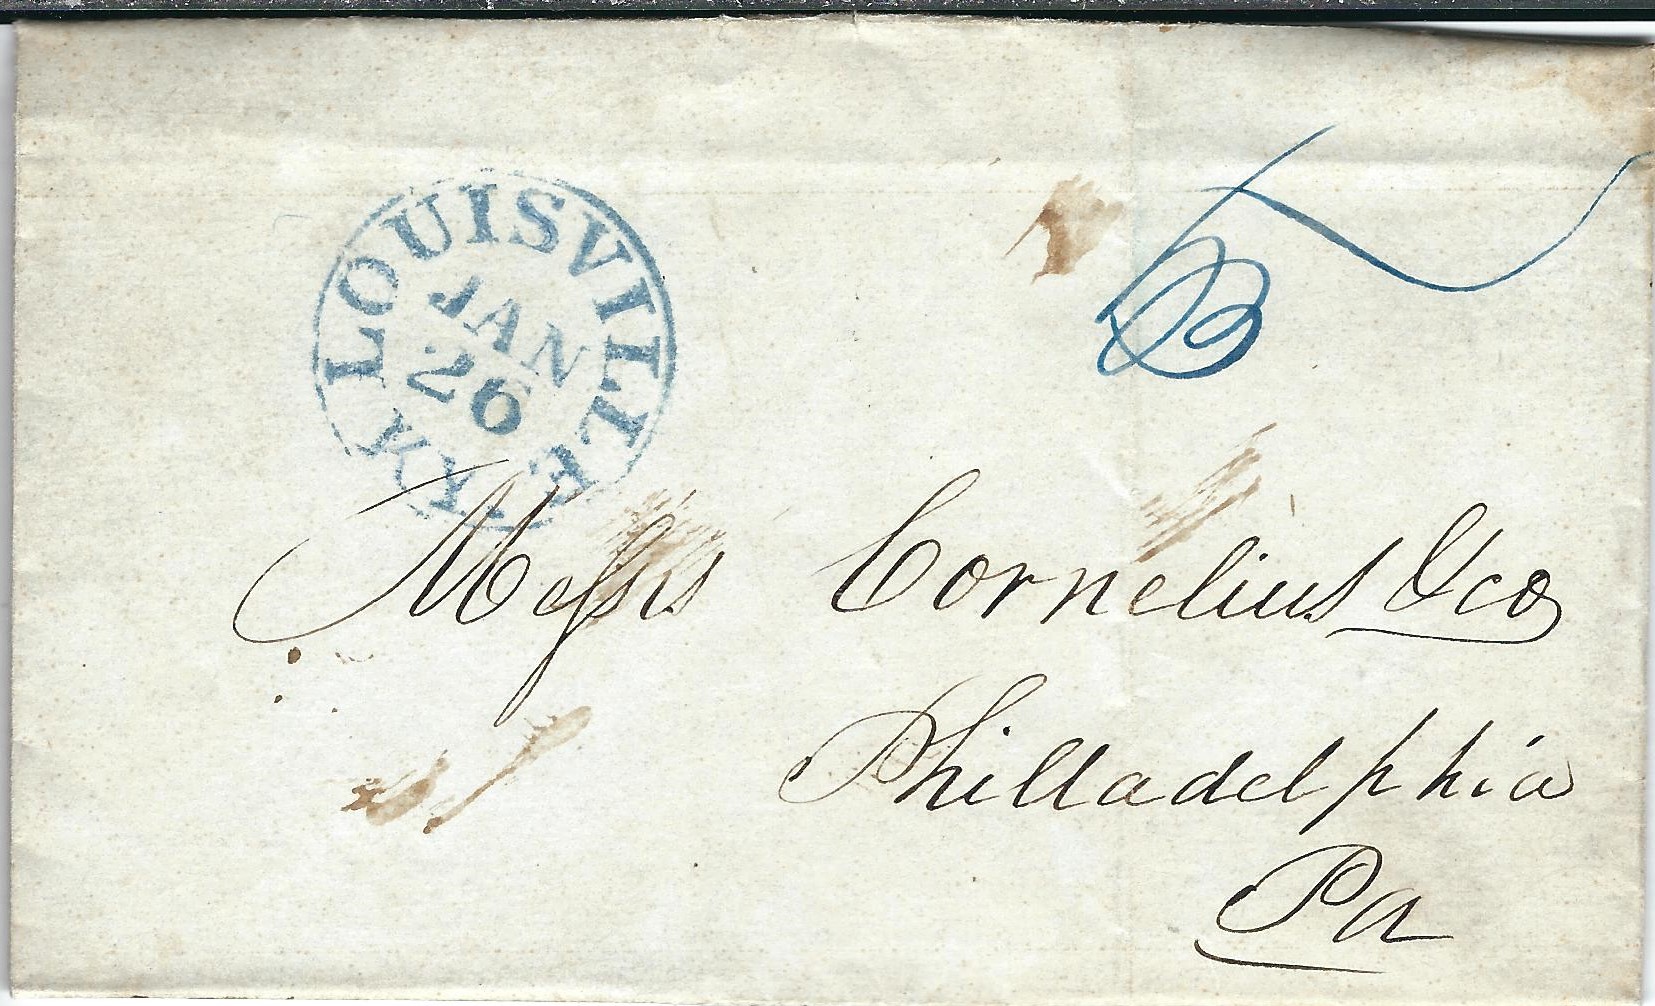 LOUISVILLE KY
JAN
26
5
Messrs Cornelius & co
Philladelphia
Pa